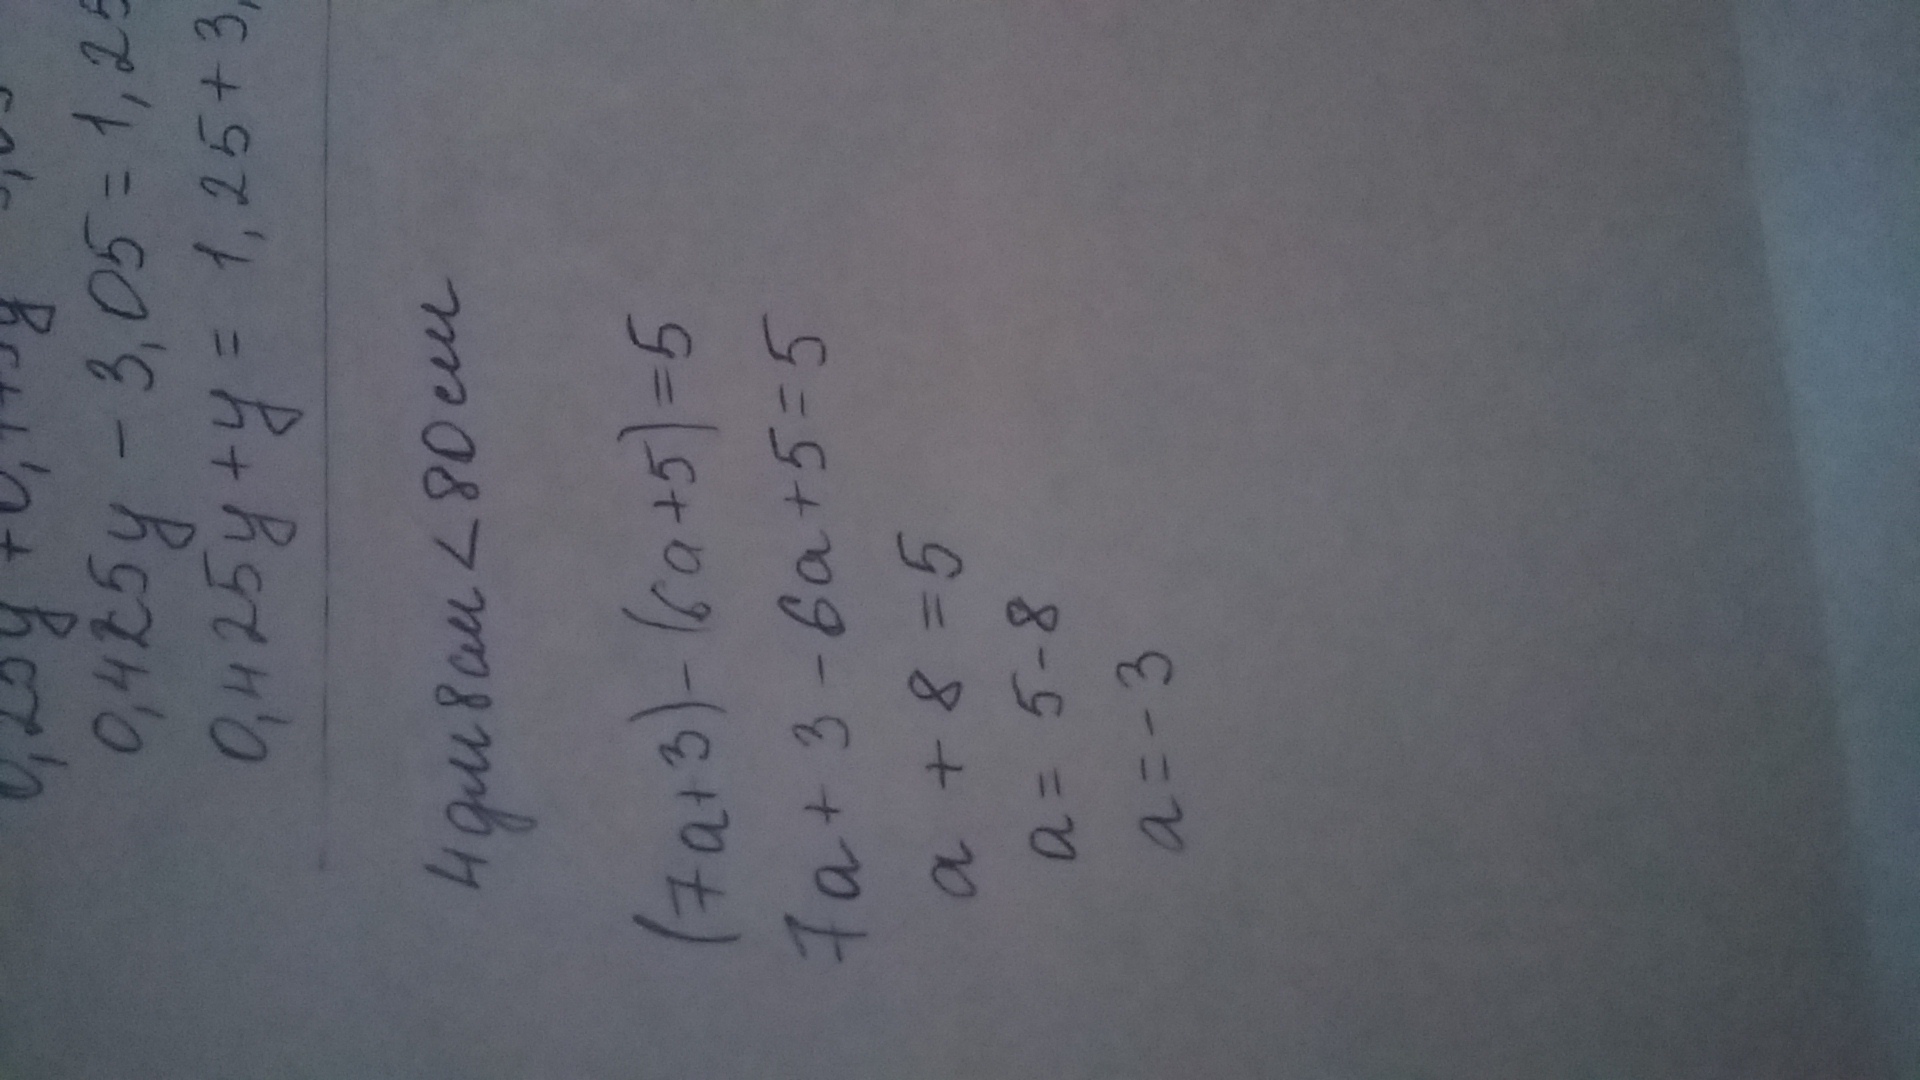 0,425y - 3,05 = 1,25
0,425y + y = 1,25 + 3,
4 дм 8 см < 80 см
(7a+3) - (6a+5) = 5
7a + 3 - 6a + 5 = 5
a + 8 = 5
a = 5 - 8
a = - 3